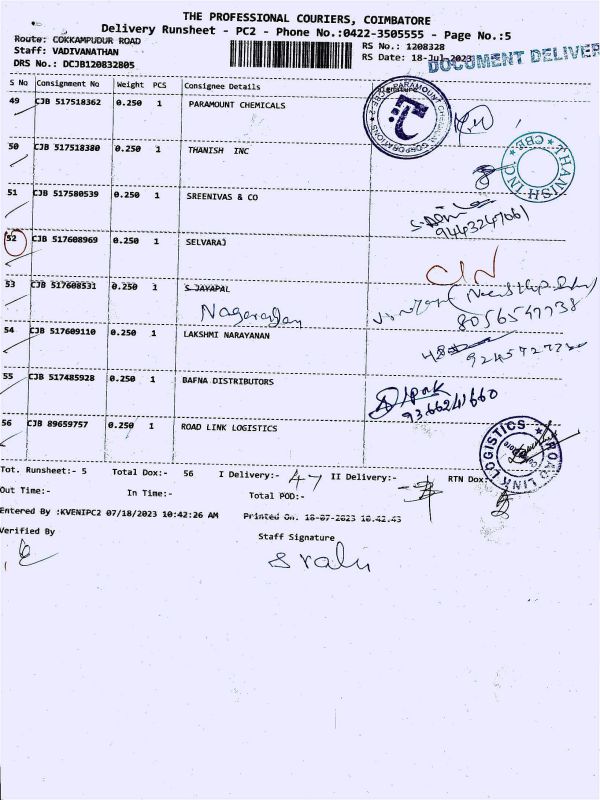 THE PROFESSIONAL COURIERS, COIMBATORE
Delivery Runsheet - PC2 - Phone No.:0422-3505555 - Page No.:5
Route: COKKAMPUDUR ROAD
RS No.: 1208328
Staff: VADIVANATHAN
RS Date: 18-Jul-2023
DOCUMENT DELIVER
DRS No.: DCJB120832805
S No Consignment No Weight PCS Consignee Details Signature
49 CJB 517518362 0.250 1 PARAMOUNT CHEMICALS
PARAMOUNT CHEMICAL CORPORATIONS
50 CJB 517518380 0.250 1 THANISH INC
THANISH INC. CBE
51 CJB 517580539 0.250 1 SREENIVAS & CO
9443247061
52 CJB 517608969 0.250 1 SELVARAJ
53 CJB 517608531 0.250 1 S JAYAPAL
Nagarajan
8056547738
54 CJB 517609110 0.250 1 LAKSHMI NARAYANAN
55 CJB 517485928 0.250 1 BAFNA DISTRIBUTORS
9366241660
56 CJB 89659757 0.250 1 ROAD LINK LOGISTICS
ROAD LINK LOGISTICS
Tot. Runsheet:- 5 Total Dox:- 56 I Delivery:- 47 II Delivery:- RTN Dox:
Out Time:- In Time:- Total POD:-
Entered By :KVENIPC2 07/18/2023 10:42:26 AM Printed On. 18-07-2023 10.42.43
Verified By
Staff Signature